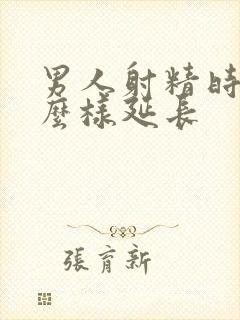 男人射精時
麼樣延長
張育新